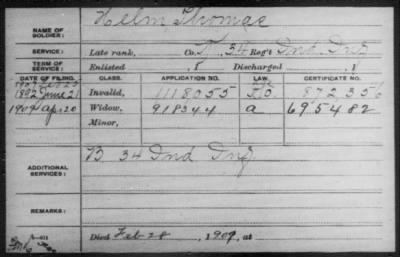 NAME OF SOLDIER: Helm Thomas
SERVICE: Late rank, Co. 34 Reg't Ind Inf
TERM OF SERVICE: Enlisted , 8 Discharged , 1
DATE OF FILING. CLASS. APPLICATION NO. LAW. CERTIFICATE NO.
1892 June 21 Invalid, 1118055 872356
1909 Apr 20 Widow, 918344 a 695482
Minor,
ADDITIONAL SERVICES: B 34 Ind Inf
REMARKS:
Died Feb 28, 1909, at